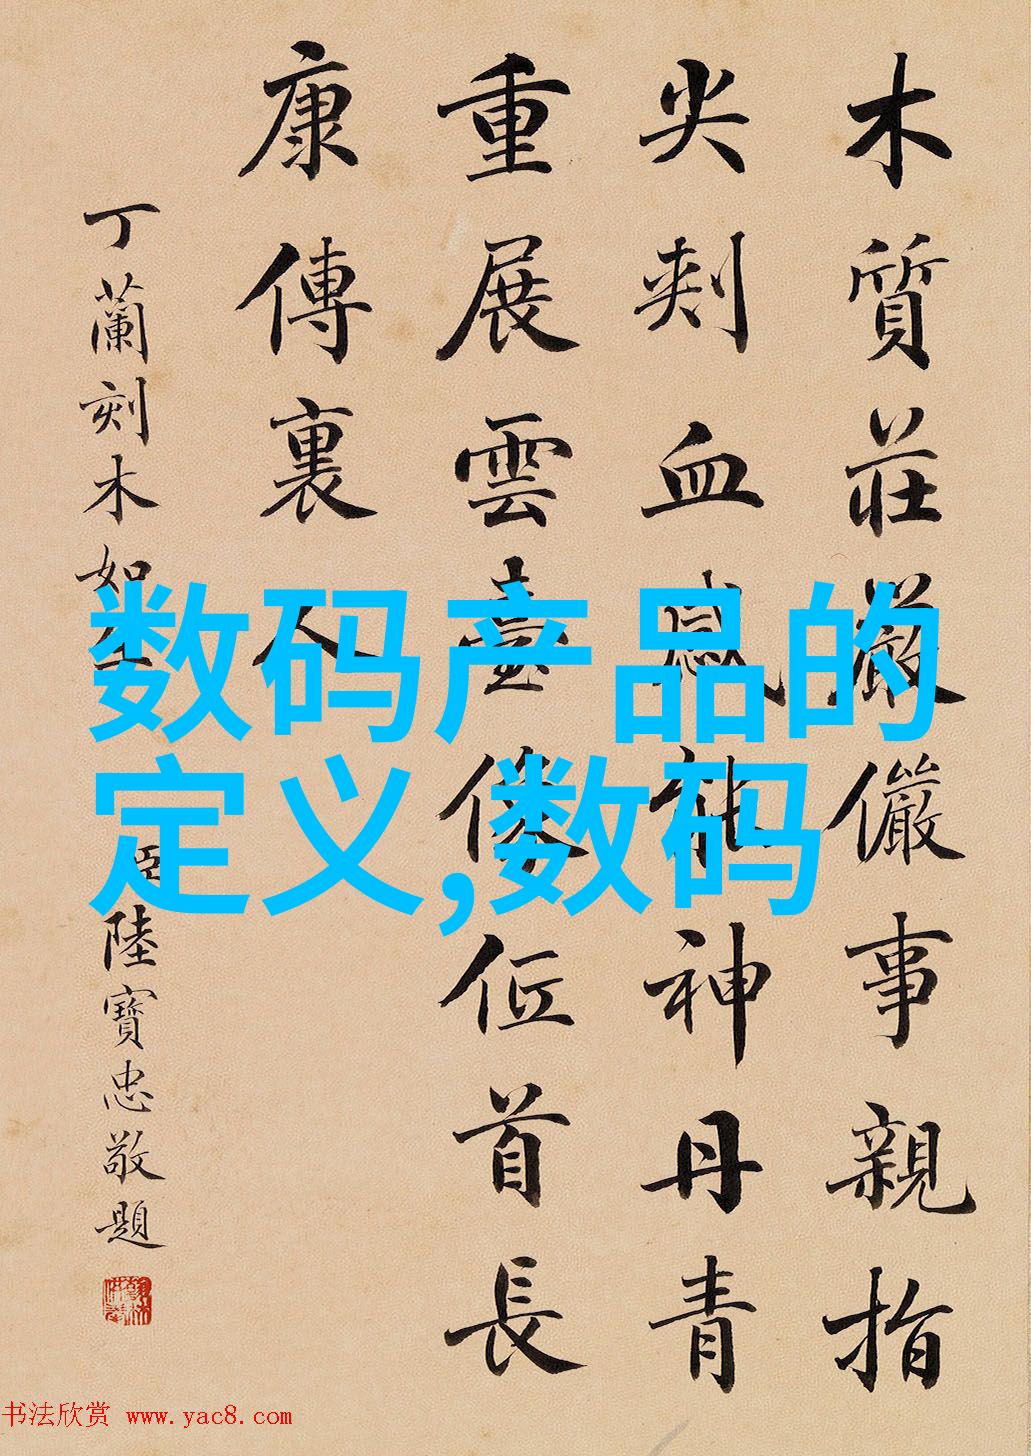 木質莊嚴儼事親指
尖刾血感能神丹青
重展雲臺像位首長
康傳裏人
丁蘭刻木如生
臣陸寶忠敬題
数码产品的
定义,数码
书法欣赏 www.yac8.com